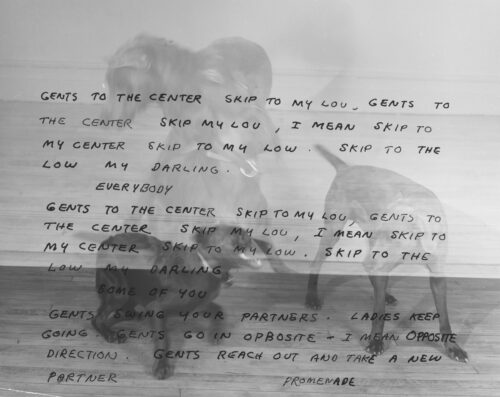 GENTS TO THE CENTER SKIP TO MY LOU, GENTS TO
THE CENTER SKIP MY LOU, I MEAN SKIP TO
MY CENTER SKIP TO MY LOW. SKIP TO THE
LOW MY DARLING.
EVERYBODY
GENTS TO THE CENTER SKIP TO MY LOU, GENTS TO
THE CENTER SKIP MY LOU, I MEAN SKIP TO
MY CENTER SKIP TO MY LOW. SKIP TO THE
LOW MY DARLING
SOME OF YOU
GENTS SWING YOUR PARTNERS. LADIES KEEP
GOING. GENTS GO IN OPBOSITE - I MEAN OPPOSITE
DIRECTION. GENTS REACH OUT AND TAKE A NEW
PARTNER PROMENADE